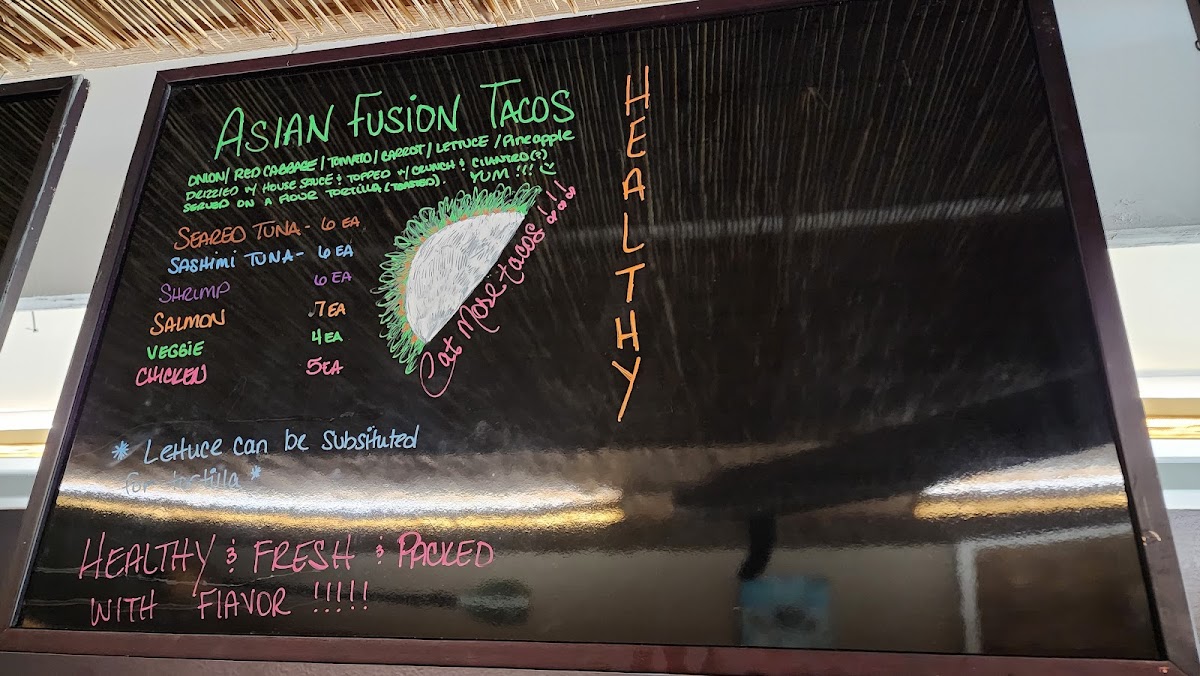 ASIAN FUSION TACOS
ONION/ RED CABBAGE / TOMATO / CARROT / LETTUCE / PINEAPPLE
DRIZZLED W/ HOUSE SAUCE & TOPPED W/ CRUNCH & CILANTRO(?)
SERVED ON A FLOUR TORTILLA (TOASTED). YUM !!!
SEARED TUNA - 6 EA
SASHIMI TUNA - 6 EA
SHRIMP 6 EA
SALMON 7 EA
VEGGIE 4 EA
CHICKEN 5 EA
Eat More tacos!!!
* Lettuce can be Subsituted
for tortilla *
HEALTHY & FRESH & PACKED
WITH FLAVOR !!!!!
HEALTHY